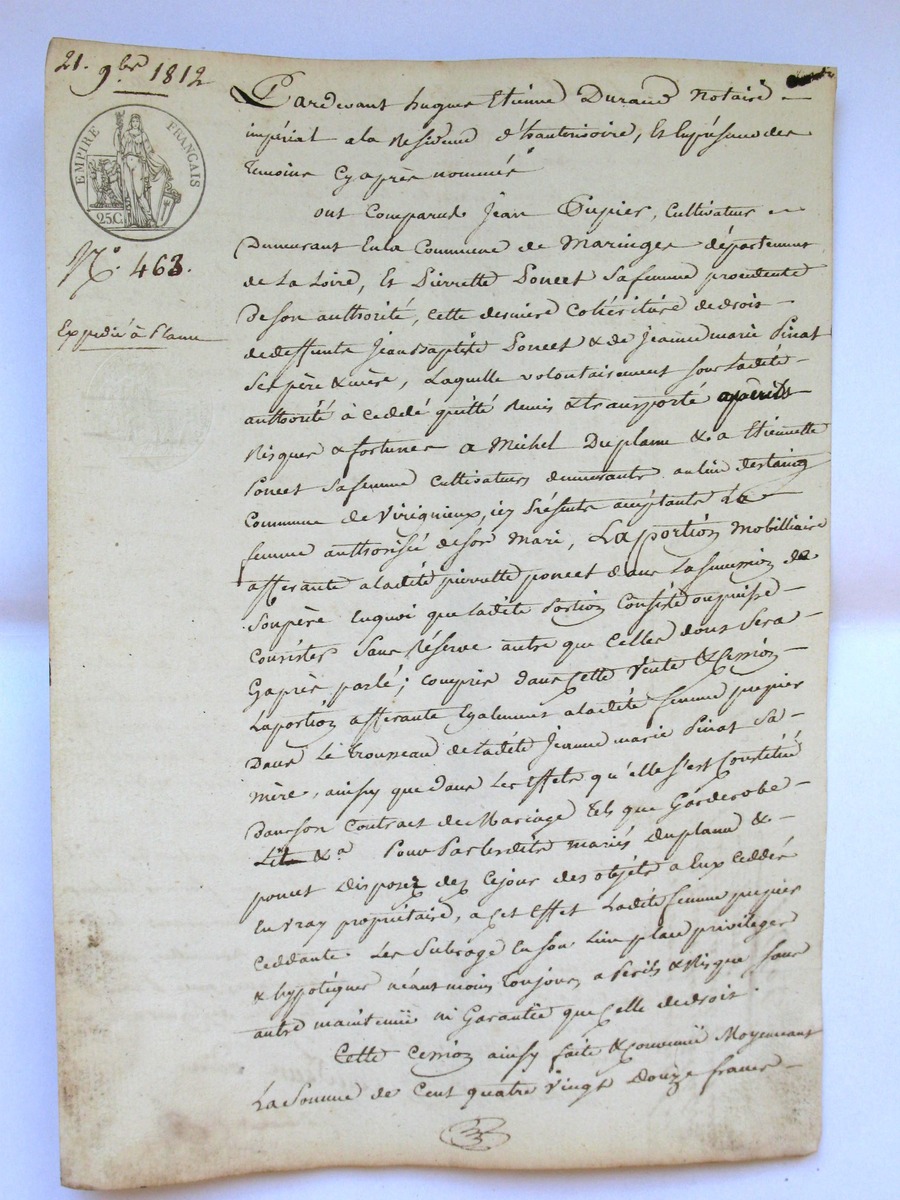 21. 9bre 1812
EMPIRE FRANÇAIS
25 C.
N° 463.
Expedié à Plame
Pardevant hugues Etienne Durand Notaire
impérial a la Residence d'hauterivoire, Et En présence des
Temoins Cy après nommés
ont Comparus Jean Pupier, Cultivateur
Demeurant En la Commune de Maringes département
de La Loire, Et Pierrette Poncet Sa femme procedente
De son authorité, cette derniere Cohéritière de droit
de deffunts Jean Baptiste Poncet & de Jeanne marie Pinat
Ses père & mère, Laquelle volontairement sous ladite
authorité à Ceddé quitté Remis & transporté a périls
Risques & fortunes a Michel Duplame & a Etiennette
Poncet Sa femme Cultivateurs demeurants au lieu
Commune de Virignieux, icy Présents acceptants & la
femme authorisée de son Mari, La portion Mobilliaire
afferante a ladite pierrette poncet dans La succession de
Son père En quoi que ladite Portion Consiste ou puisse
Consister Sans Réserve autre que Celles dont Sera
Cy après parlé; Compris dans Cette Vente & Cession
La portion afferante, Egalement a ladite femme pupier
Dans Le Trousseau de ladite Jeanne marie Pinat Sa
mère, ainsy que dans Les Effets qu'elle s'est Constitué
Dans son Contract de Mariage tels que Garderobe
Lit & a Pour Par lesdits mariés Duplame &
poncet Disposer dez Cejour des objets a Eux Ceddés
En vray propriétaire, a Cet Effet Ladite femme pupier
Ceddante Les Subroge En son Lieu place privilèges
& hypotèques néantmoins Toujours a Perils & Risque Sans
autre maintenüe ni Garantie que Celle de droit.
Cette Cession ainsy faite & Convenüe Moyennant
La Somme de Cent quatre Vingt Douze francs